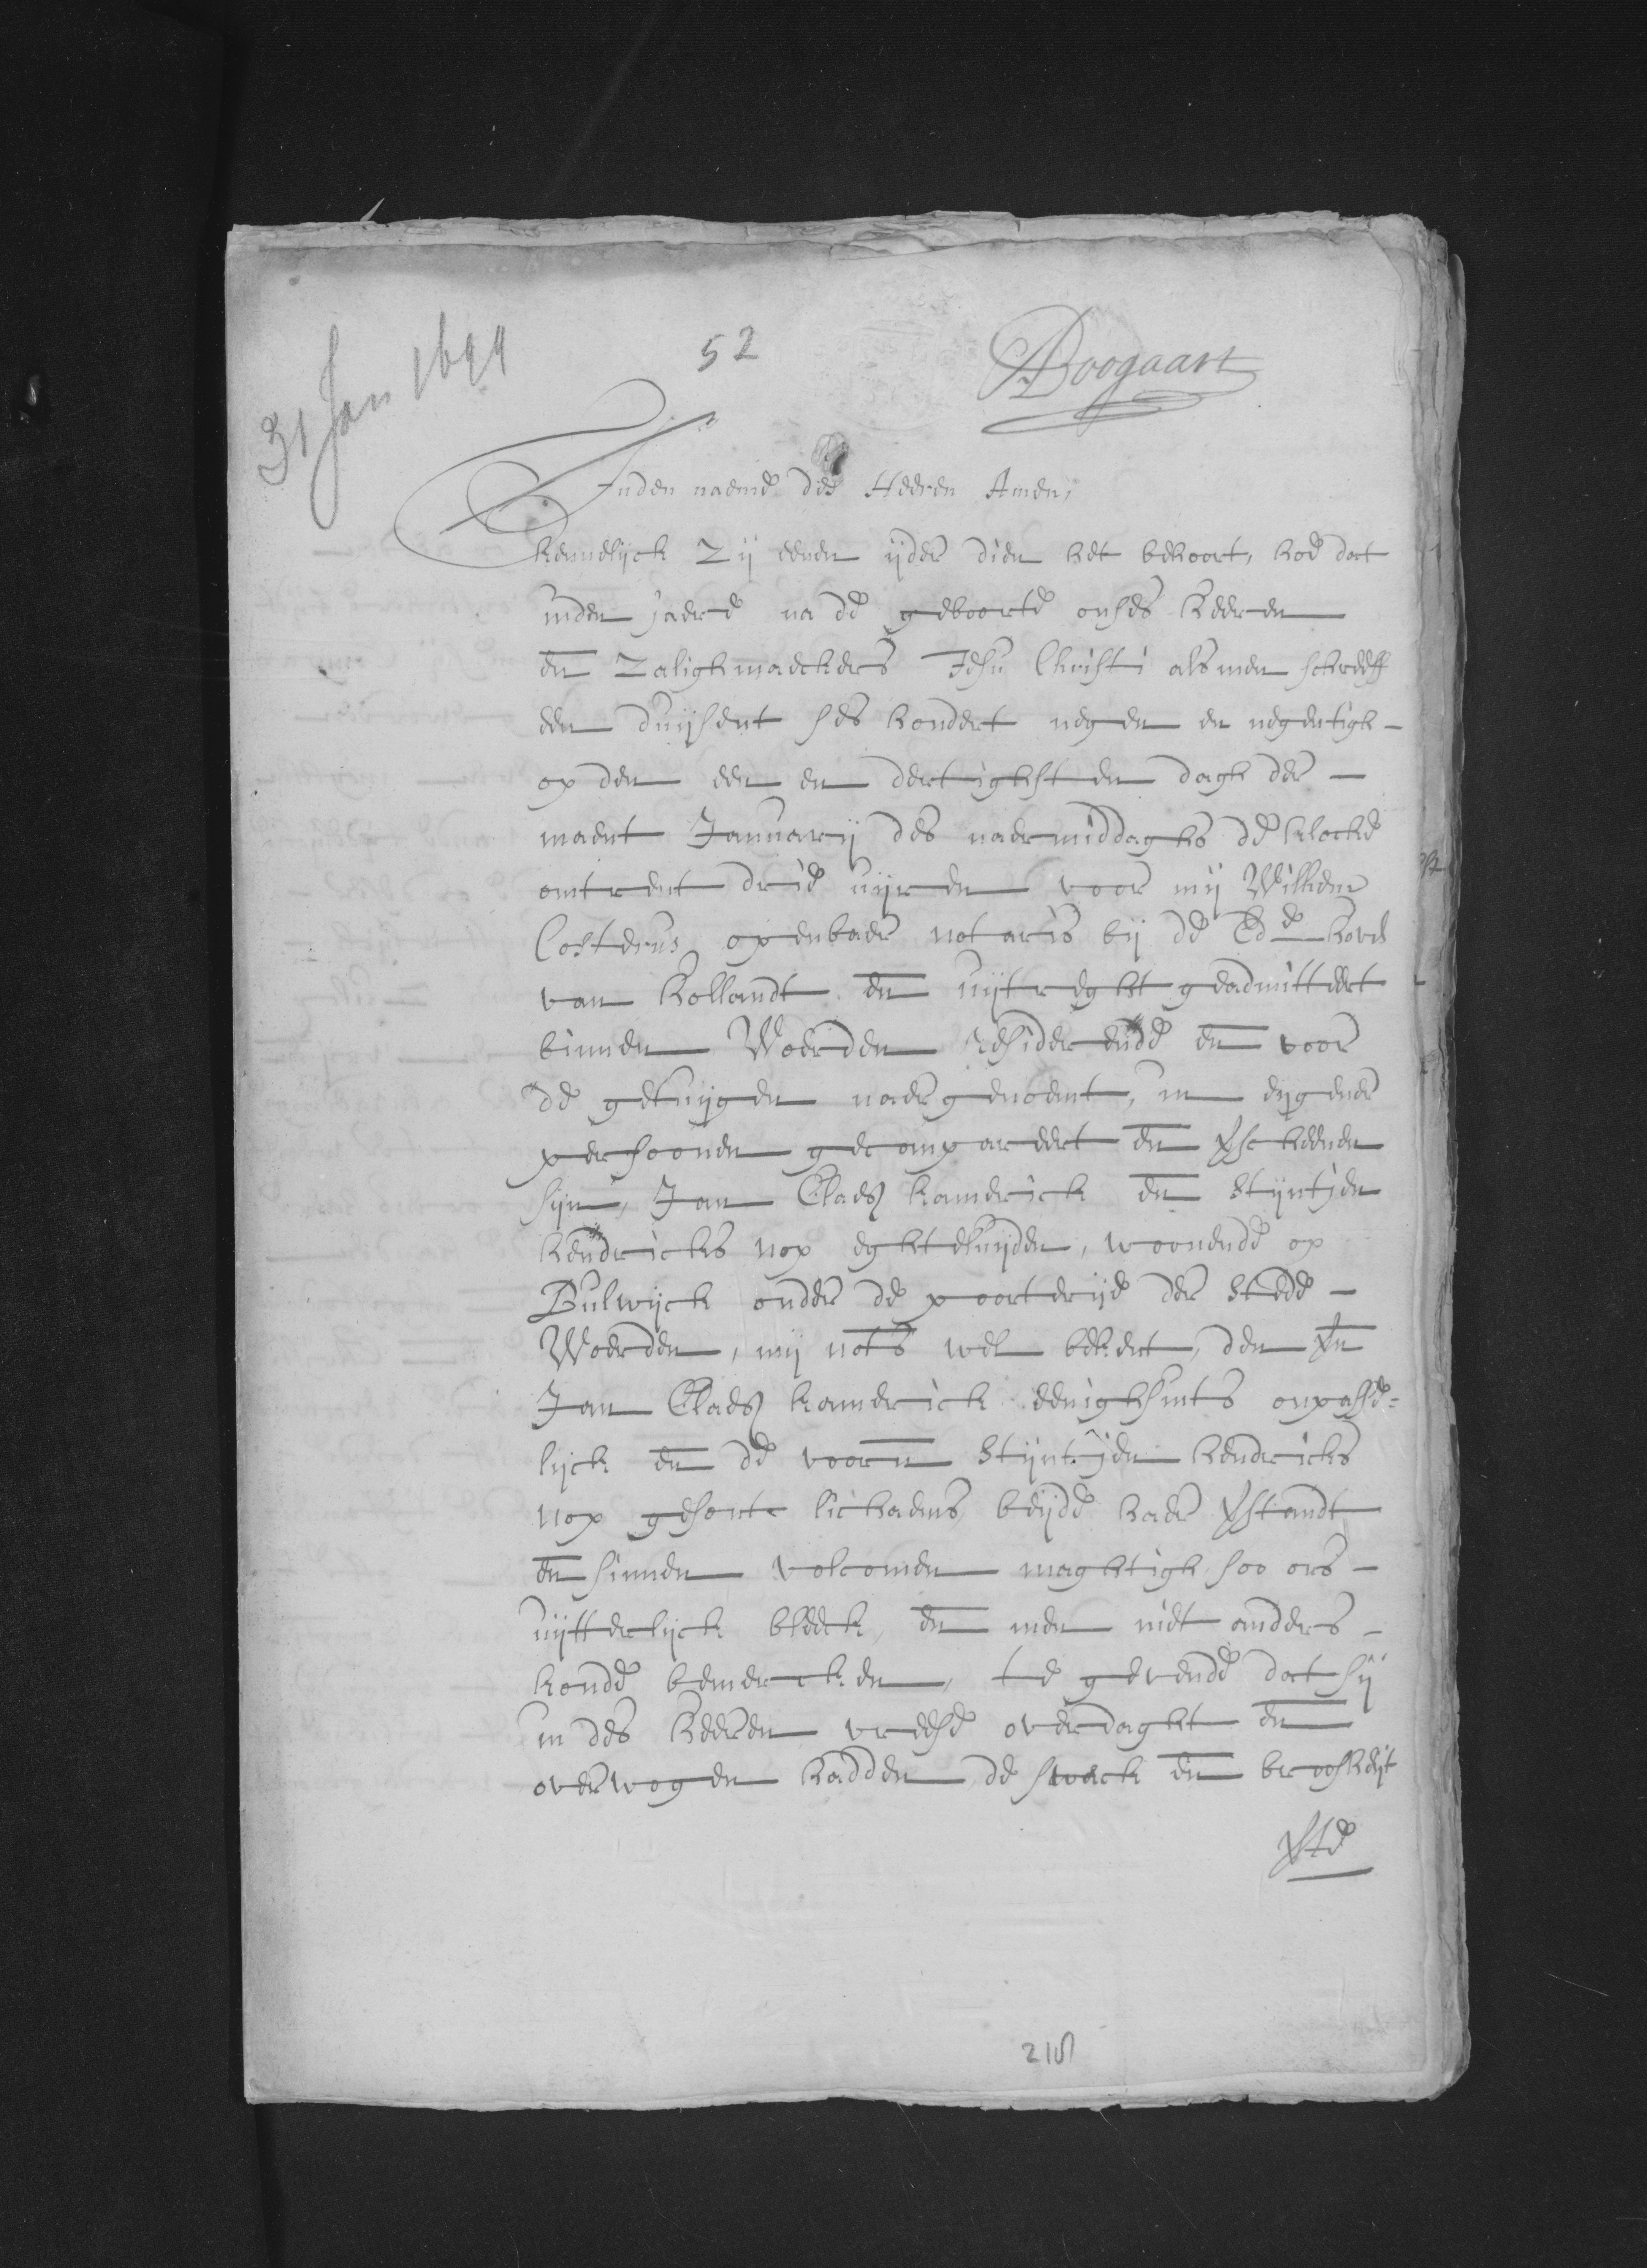 31 Jan 1699
52
ABoogaart
Inden naeme des Heeren Amen,
kennelijck zij eenen ijder dien het behoort, hoe dat
inden jaere na de geboorte onses heeren
en zalighmaeckers Jesu Christi als men schreeff
een duijsent ses hondert negen en negentigh -
op den een en dertighsten dagh der -
maent Januarij des naermiddaghs de klocke
omtrent drie uijren voor mij Willem
Costerus openbaer notaris bij de Ede hove
van hollandt en uijtreght geadmitteert
binnen Woerden residerende en voor
de getuijgen naergenoemt, in eijgener
persoonen gecompareert en vscheenen
sijn, Jan Claesz kamerick en Stijntjen
hendricks nop eghteluijden, woonende op
Bulwijck onder de poorterije der stede -
Woerden, mij nots wel bekent, den vn
Jan Claesz kamerick eenighsints onpasse=
lijck en de voorn Stijntjen hendricks
nop gesont lichaems, beijde haer vstandt
en sinnen volcomen maghtigh soo ons -
uijtterlijck bleeck, en men niet anders -
konde bemercken, te gevende dat sij
in des heeren vreese overdaght en
overwogen hadden de swack en broosheijt
vte
218